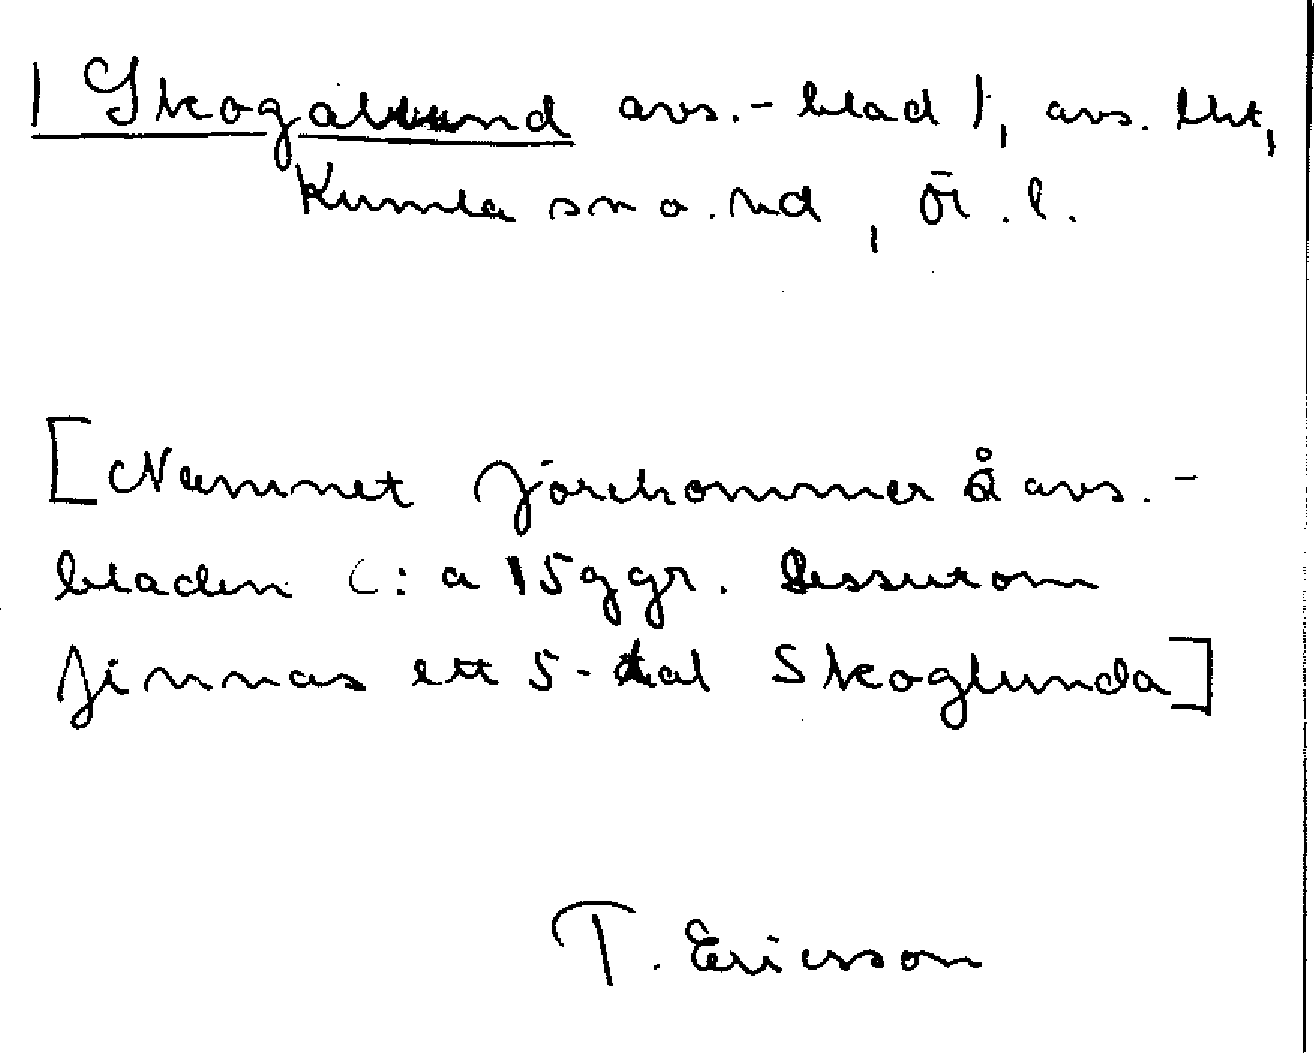 | Skogalund avs.-blad |, avs. tkt,
Kumla sn o. hd, Ör. l.
[Namnet förekommer å avs.-
bladen c:a 15 ggr. Dessutom
finnas ett 5-tal Skoglunda]
T. Ericsson